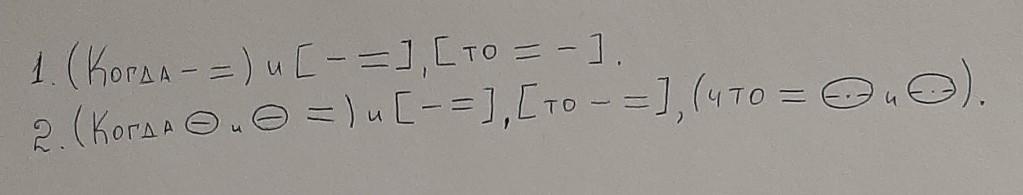 1. (Когда - =) и [ - = ], [ то = - ].
2. (Когда ⊖ и ⊖ =) и [ - = ], [ то - = ], (что = (-·-·) и (-·-·)).